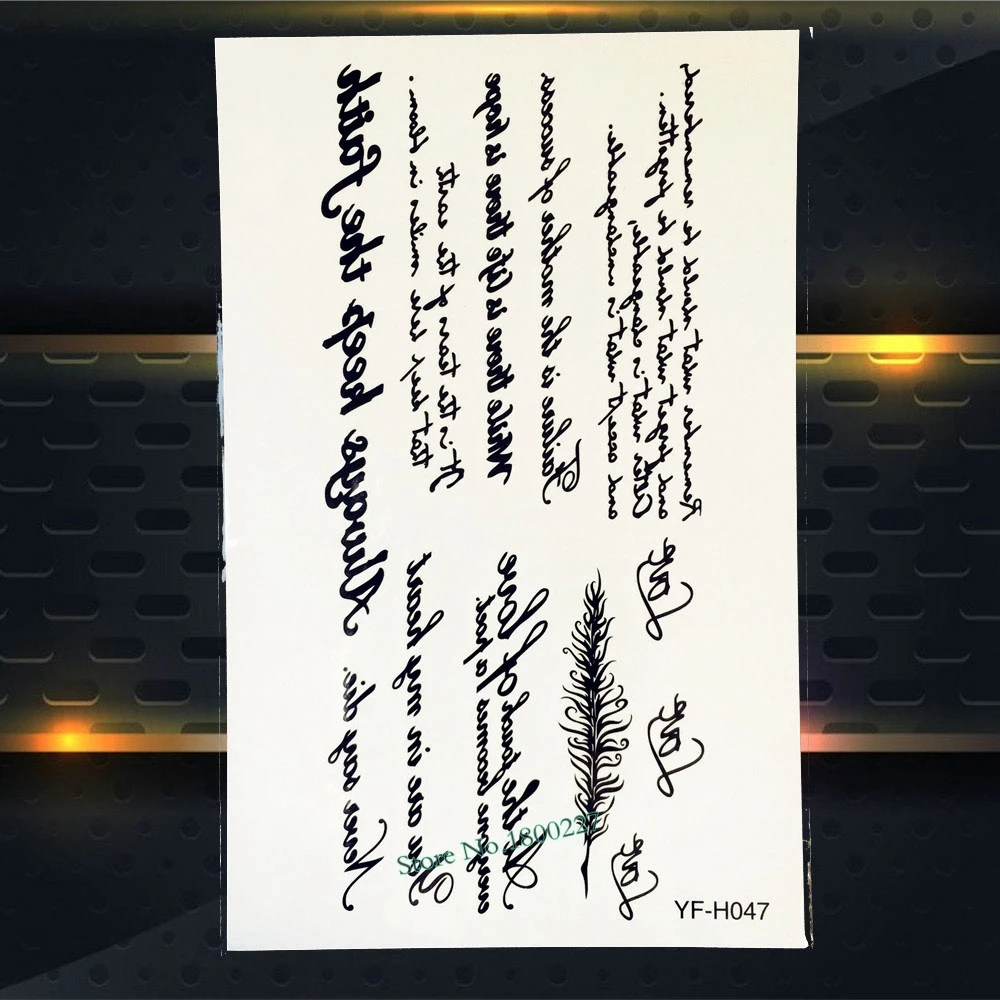 Always keep the Faith
It is the tears of the earth
that keep her smiles in bloom.
While there is life there is hope
Failure is the mother of success
Remember what should be remembered
and forget what should be forgotten.
Alter what is changeable,
and accept what is
Never say die.
You are in my heart
At the touch of love
everyone becomes a poet.
Love
Love
Love
Store No 1800227
YF-H047